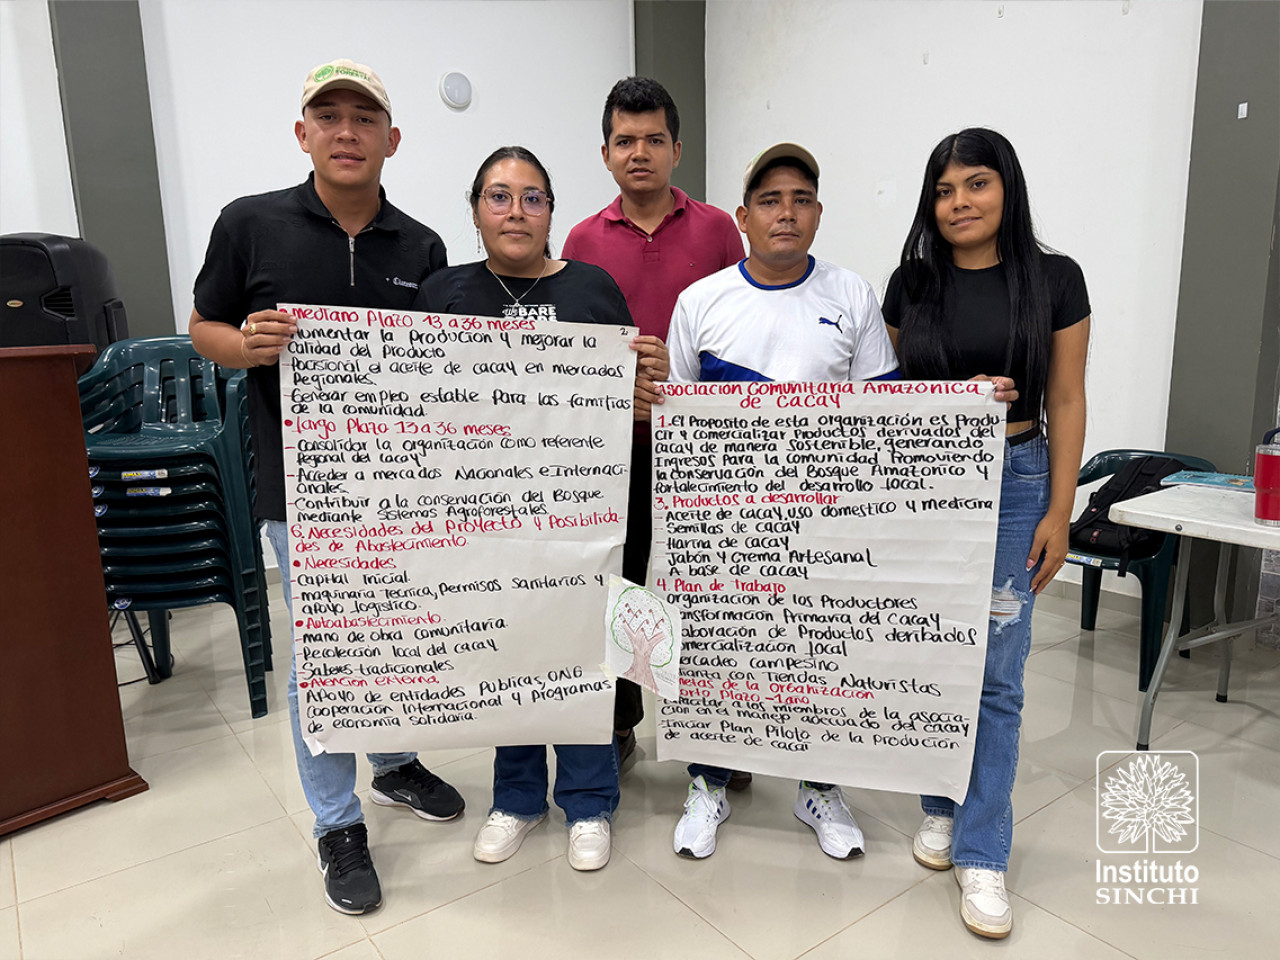 • Mediano Plazo 13 a 36 meses
2.
Aumentar la Produción y mejorar la
calidad del Producto
- Pocisional el aceite de cacay en mercados
Regionales.
- Generar empleo estable para las familias
de la comunidad.
• largo Plazo 13 a 36 meses
- consolidar la organización como referente
Regional del cacay
- Acceder a mercados Nacionales e Internaci-
onales.
- Contribuir a la conservación del Bosque
mediante sistemas Agroforestales.
6. Necesidades del Proyecto y Posibilida-
des de Abastecimiento.
• Necesidades
- Capital Inicial.
- maquinaria Tecnica, Permisos sanitarios y
apoyo logístico.
• Autoabastecimiento.
- mano de obra comunitaria.
- Recolección local del cacay
- Saberes tradicionales
• Atención externa.
Apoyo de entidades Publicas, ONG
Cooperación Internacional y Programas
de economía solidaria.
Asociación Comunitaria Amazonica
de cacay
1. El Proposito de esta organización es Produ-
cir y comercializar Productos derivados del
cacay de manera sostenible, generando
Ingresos Para la comunidad, Promoviendo
la conservación del Bosque Amazonico y
fortalecimiento del desarrollo local.
3. Productos a desarrollar
- Aceite de cacay uso domestico y medicina
- Semillas de cacay
- Harina de cacay
- Jabón y Crema Artesanal
A base de cacay
4. Plan de Trabajo
organización de los Productores
Transformación Primaria del cacay
elaboración de Productos deribados
comercialización local
mercadeo campesino
alianza con Tiendas Naturistas
metas de la organización
corto Plazo - 1 año
- Capacitar a los miembros de la asocia-
cion en el manejo adecuado del cacay
- Iniciar Plan Piloto de la Produción
de aceite de cacai
BARE
Instituto
SINCHI